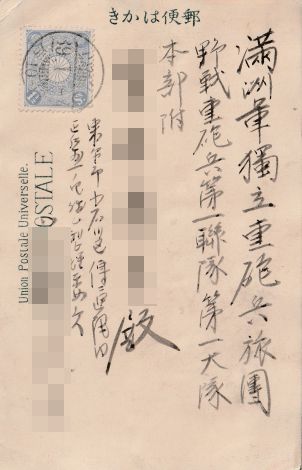 きかは便郵
滿洲軍獨立重砲兵旅團
野戰重砲兵第一聯隊第一大隊
本部附
殿
東京市小石川區傳通院内
Union Postale Universelle.
OSTALE